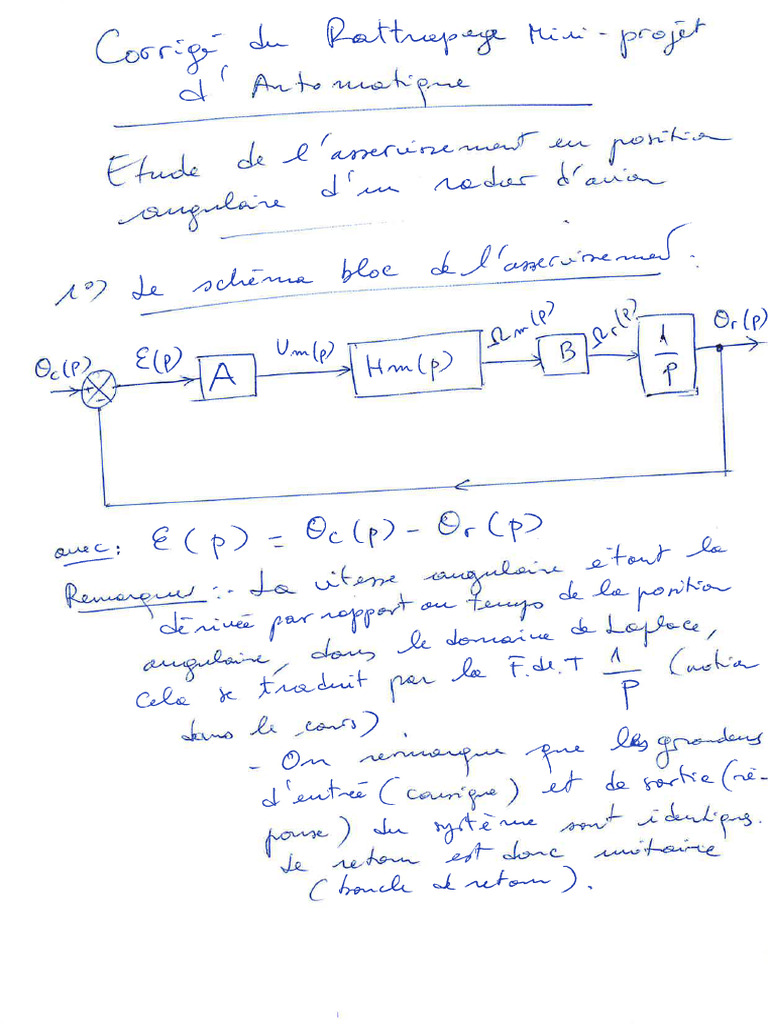 Corrigé du Rattrapage Mini-projèt
d'Automatique
Etude de l'asservissement en position
angulaire d'un radar d'avion
1°) Le schéma bloc de l'asservissement :
Θc(p) + - ε(p) A Um(p) Hm(p) Ωm(p) B Ωr(p) 1/P Θr(p)
avec : ε(p) = Θc(p) - Θr(p)
Remarques :- La vitesse angulaire étant la
dérivée par rapport au temps de la position
angulaire, dans le domaine de Laplace,
Cela se traduit par la F.de.T 1/P (notion
dans le cours)
- On remarque que les grandeurs
d'entrée (consigne) et de sortie (ré-
ponse) du système sont identiques.
Le retour est donc unitaire
(boucle de retour).